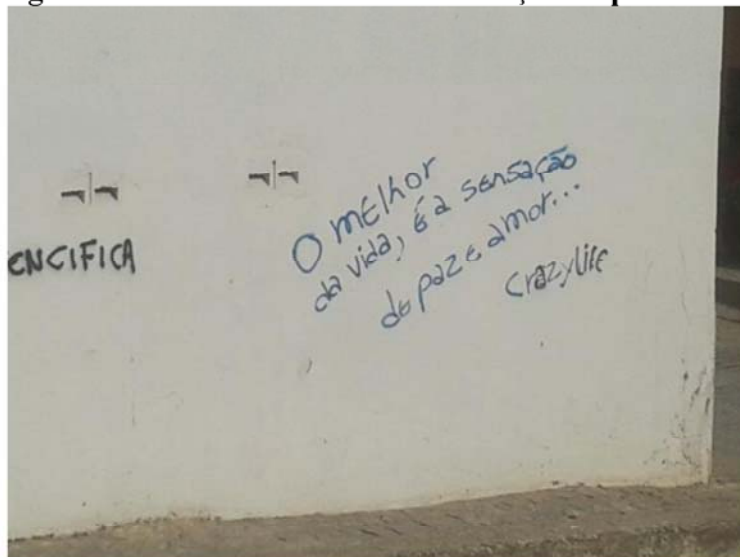 ENCIFICA
O melhor
da vida, é a sensação
de paz e amor...
Crazylife